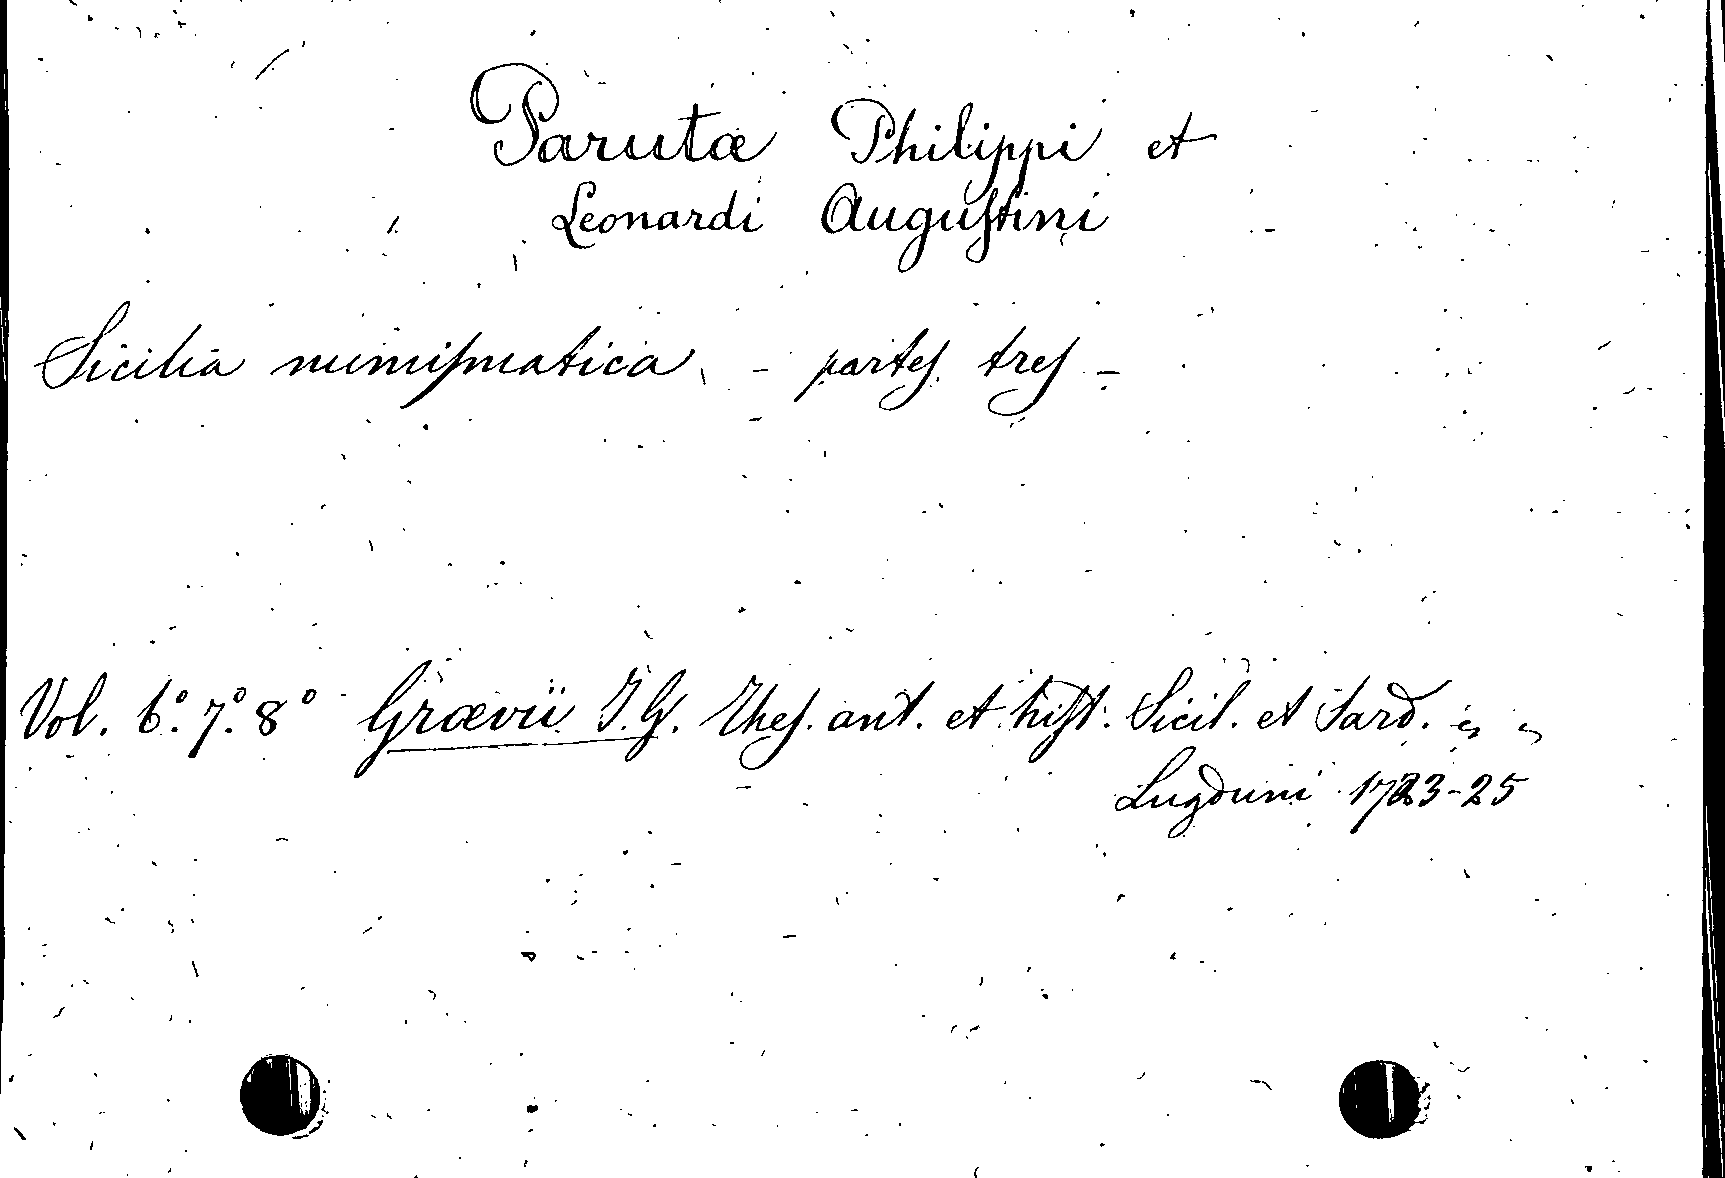 Parutæ Philippi et
Leonardi Auguſtini
Sicilia numiſmatica - parteſ treſ -
Vol. 6º. 7º. 8º Grævii J. G. Theſ. ant. et hiſt. Sicil. et Sard. " "
Lugduni 1723-25